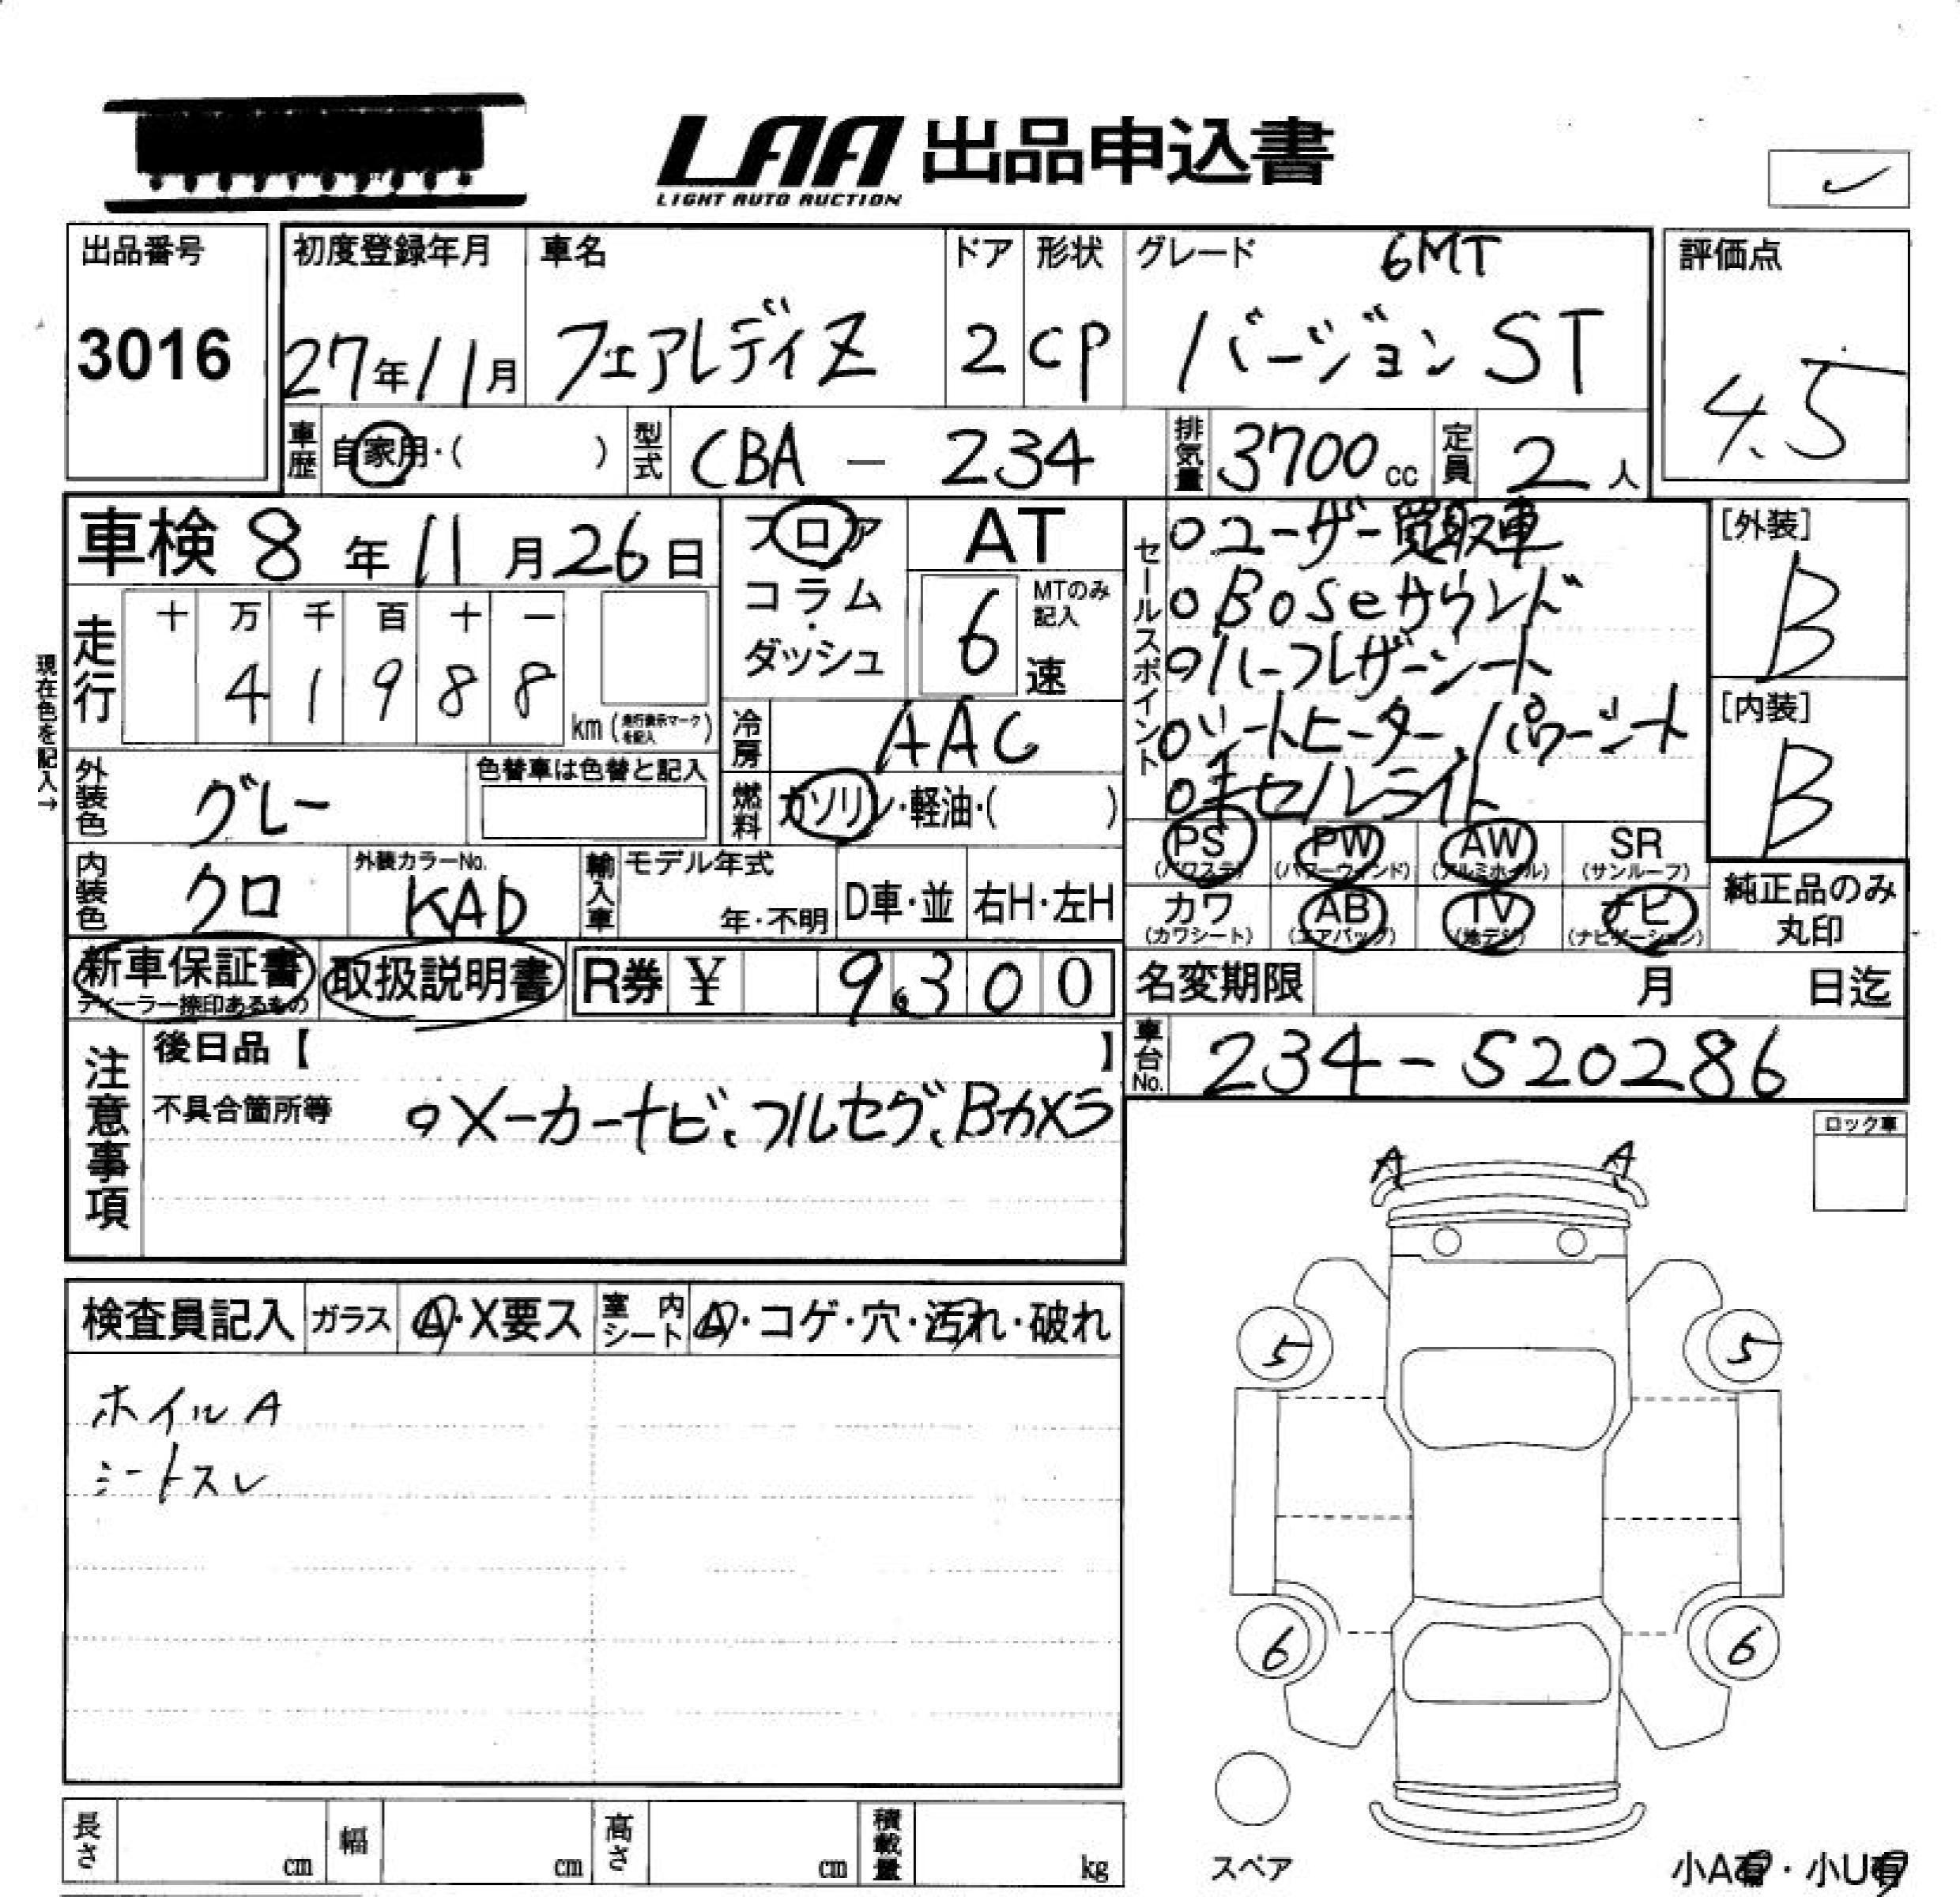 LAA 出品申込書
LIGHT AUTO AUCTION
出品番号
3016
初度登録年月
27年11月
車名
フェアレディZ
ドア
2
形状
CP
グレード 6MT
バージョン ST
評価点
4.5
車歴 自家用・( )
型式 CBA - Z34
排気量 3700cc
定員 2人
車検 8年11月26日
走行
十 万 千 百 十 一
4 1 9 8 8
km (走行表示マークを記入)
現在色を記入→
フロア
コラム
・
ダッシュ
AT
6 MTのみ記入
速
冷房 AAC
燃料 ガソリン・軽油・( )
セールスポイント
○ユーザー買取車
○BOSEサウンド
○ハーフレザーシート
○シートヒーター、パワーシート
○キセノンライト
[外装]
B
[内装]
B
外装色 グレー
色替車は色替と記入
内装色 クロ
外装カラーNo.
KAD
輸入車
モデル年式
年・不明
D車・並
右H・左H
PS
(パワステ)
PW
(パワーウィンド)
AW
(アルミホイル)
SR
(サンルーフ)
カワ
(カワシート)
AB
(エアバッグ)
TV
(地デジ)
ナビ
(ナビゲーション)
純正品のみ
丸印
新車保証書
ディーラー捺印あるもの
取扱説明書
R券 ¥ 9,300
名変期限 月 日迄
車台No. Z34-520286
注意事項
後日品【 】
不具合箇所等 ○メーカーナビ、フルセグ、Bカメラ
ロック車
A A
検査員記入
ガラス A・X要ス
室内シート A・コゲ・穴・汚れ・破れ
ホイルA
シートスレ
5 5
6 6
スペア
小A有・小U有
長さ cm
幅 cm
高さ cm
積載量 kg